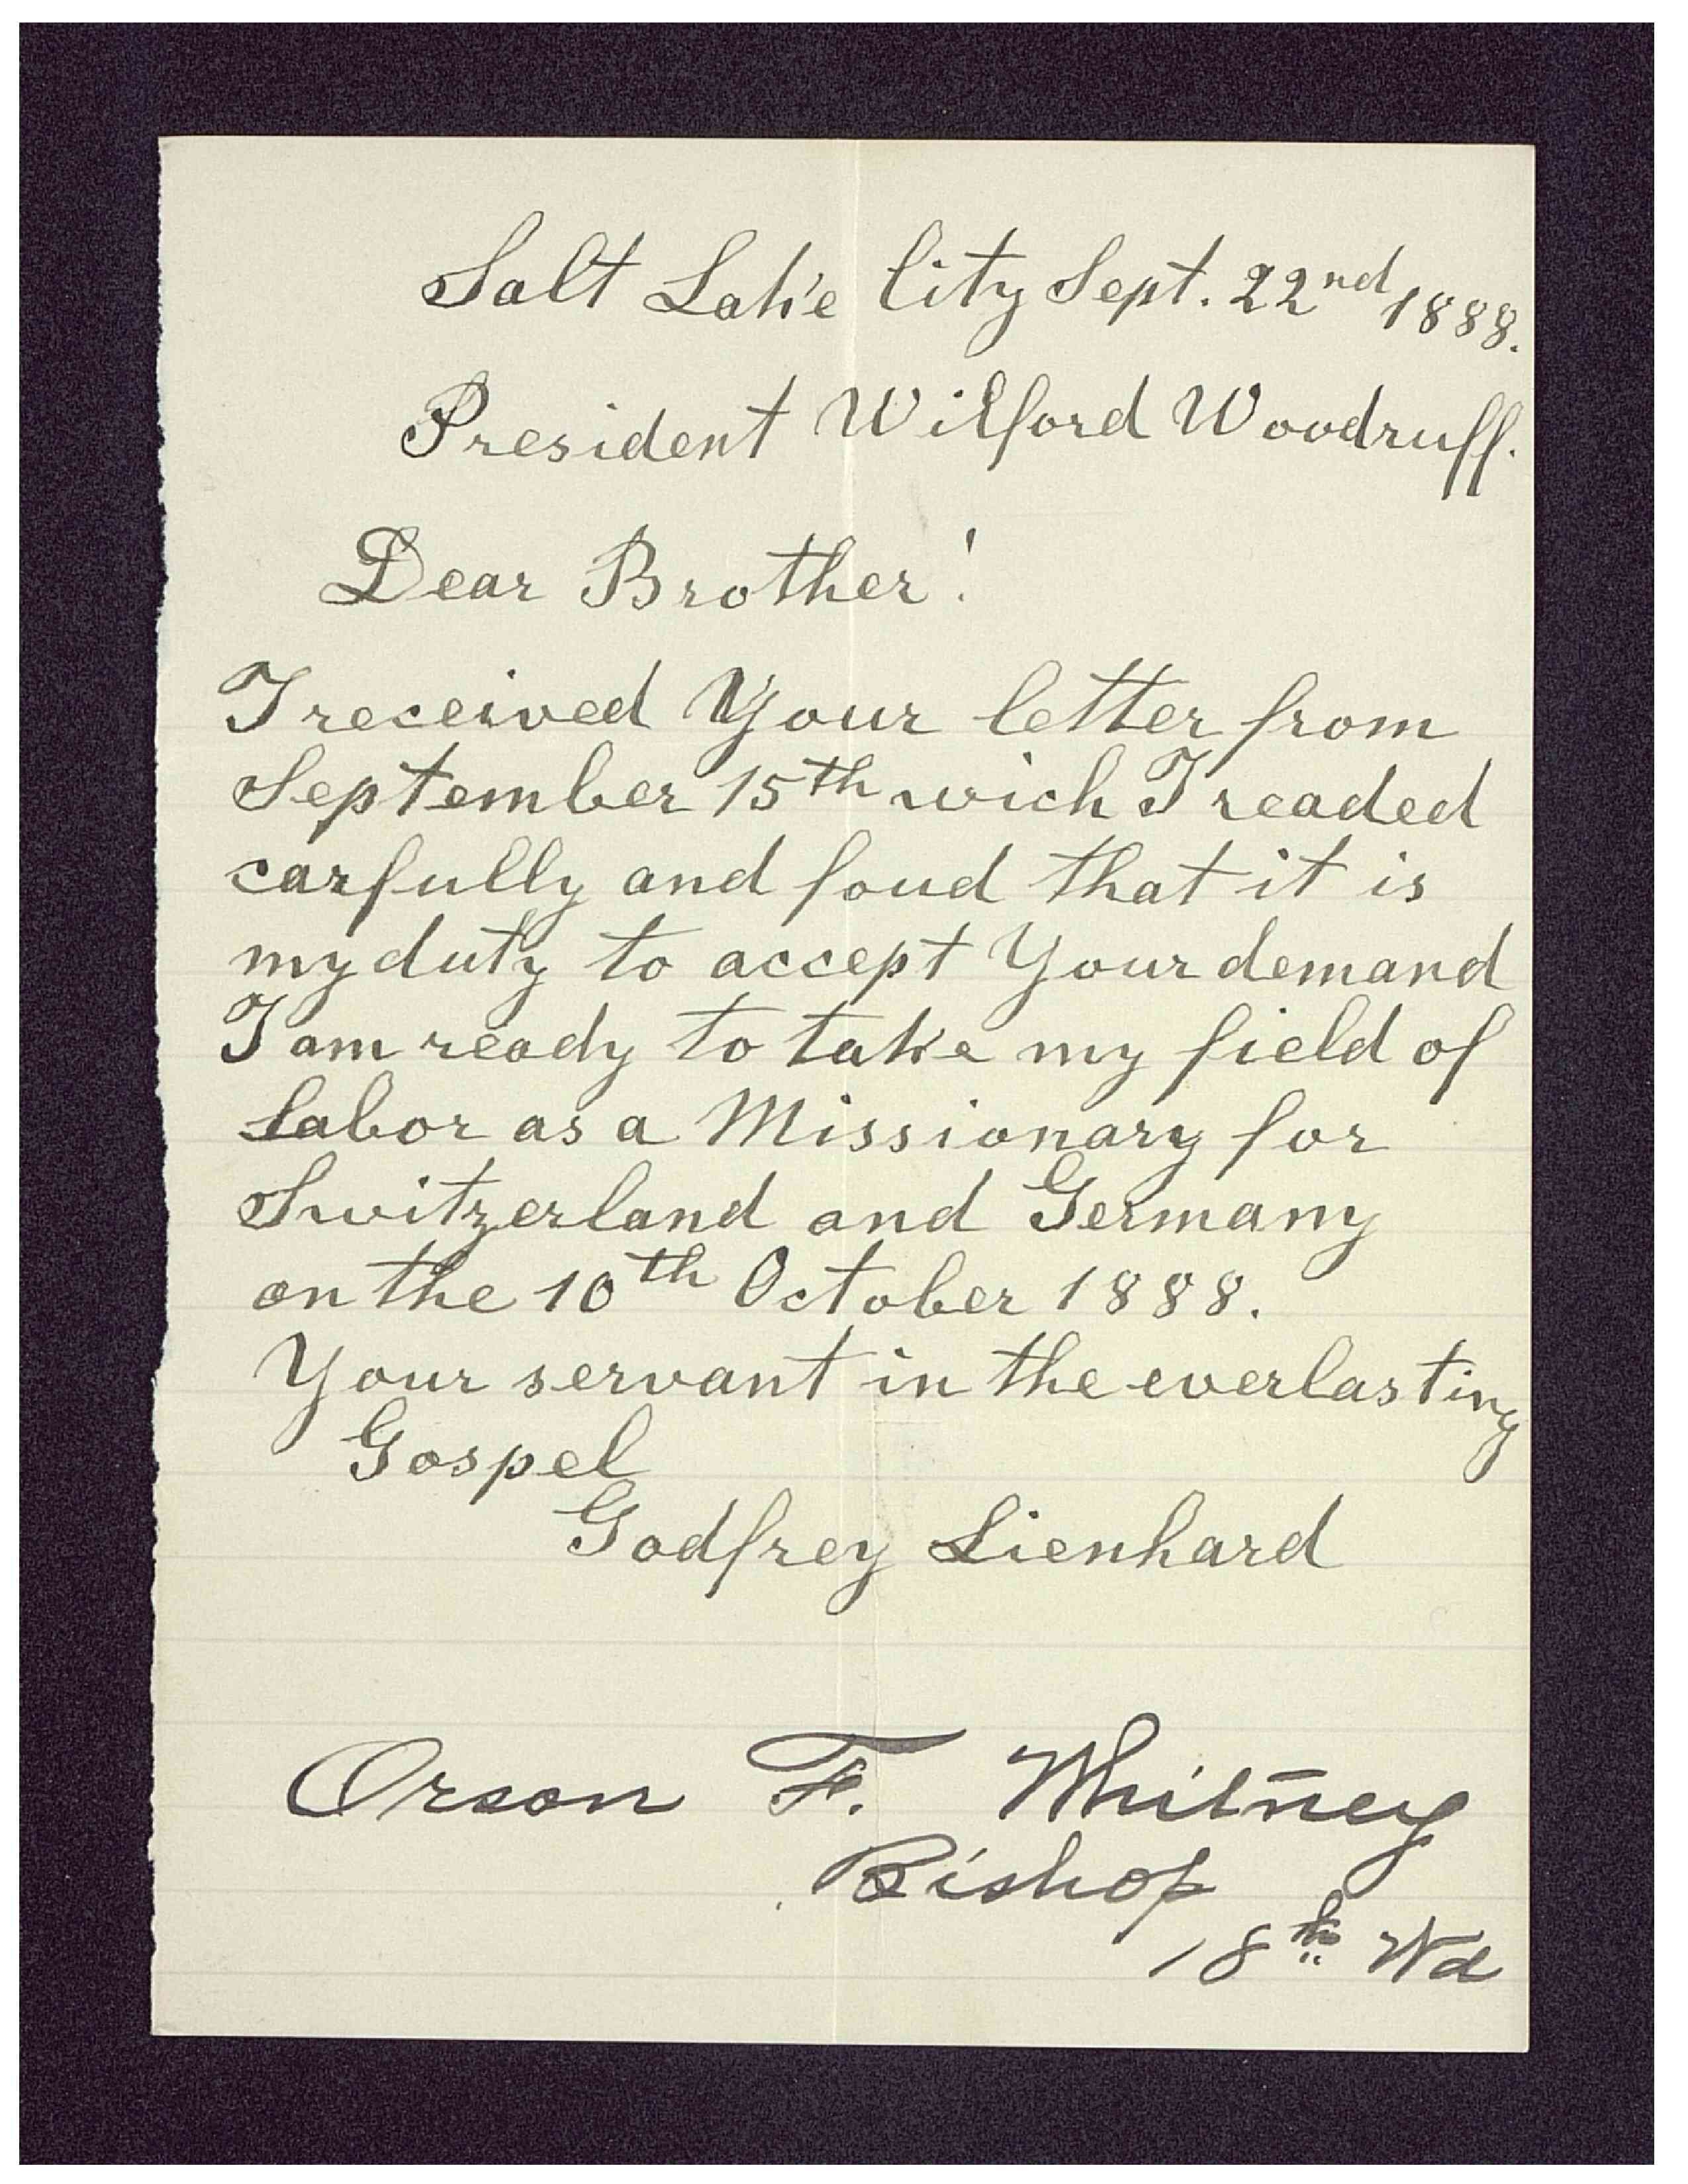 Salt Lake City Sept. 22nd 1888.
President Wilford Woodruff.
Dear Brother!
I received Your letter from
September 15th wich I readed
carfully and foud that it is
my duty to accept Your demand
I am ready to take my field of
labor as a Missionary for
Switzerland and Germany
on the 10th October 1888.
Your servant in the everlasting
Gospel
Godfrey Lienhard
Orson F. Whitney
Bishop
18th Wd